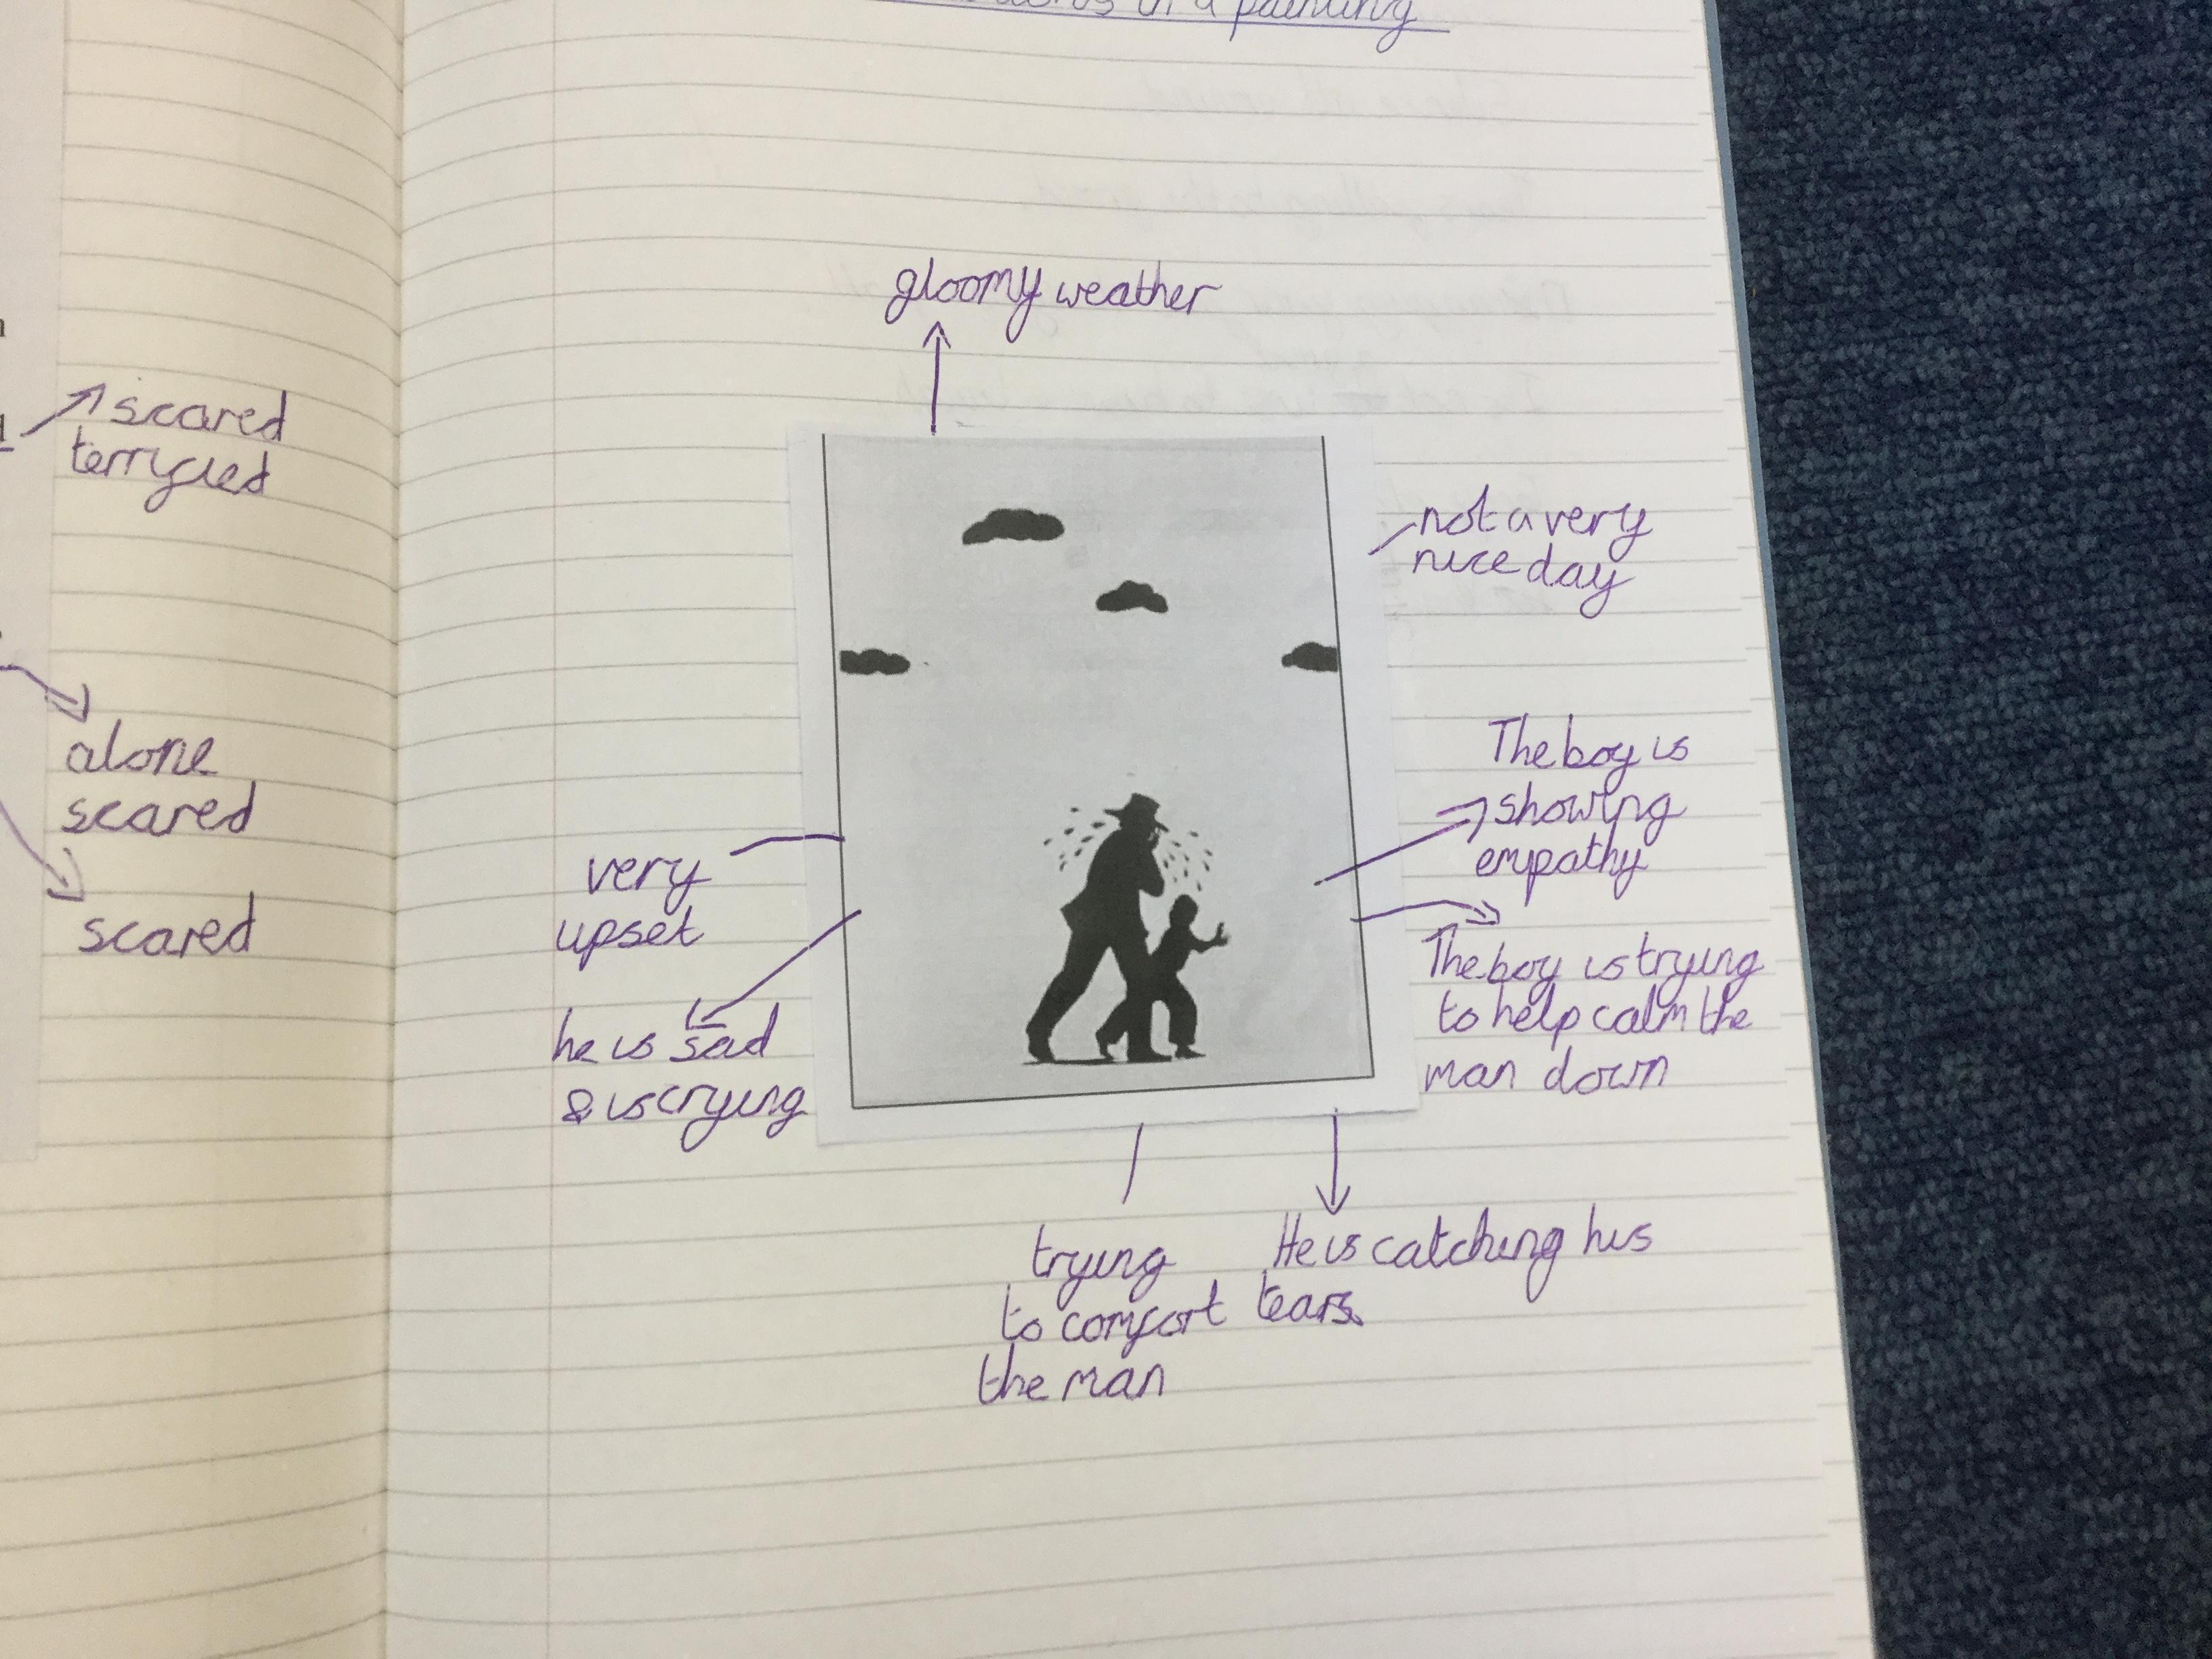 in a painting
scared
terryied
alone
scared
scared
gloomy weather
not a very
nice day
The boy is
showing
empathy
The boy is trying
to help calm the
man down
very
upset
he is sad
& is crying
trying
to comfort
the man
He is catching his
tears.